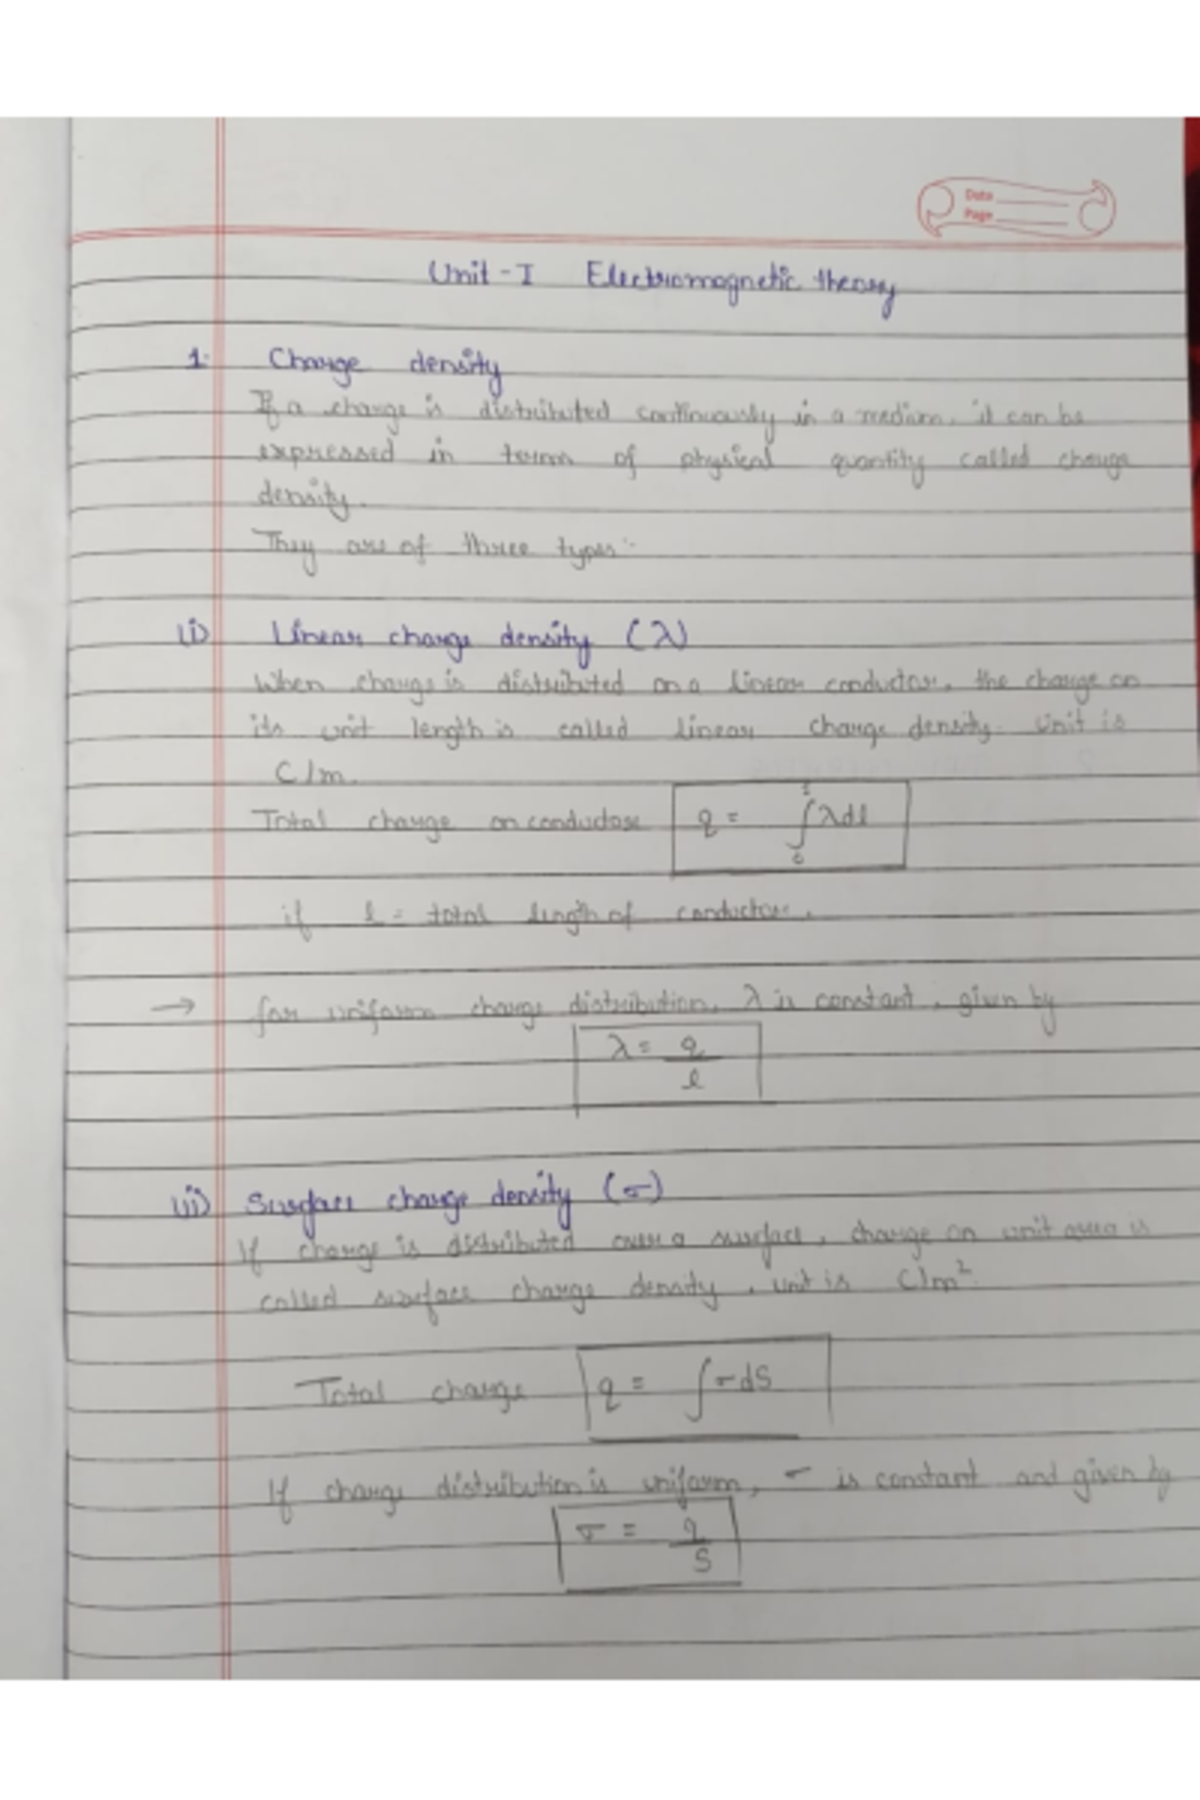 Date
Page
Unit - I Electromagnetic theory
1. Charge density
If a charge is distributed continuously in a medium, it can be
expressed in terms of physical quantity called charge
density.
They are of three types:-
(i) Linear charge density (λ)
When charge is distributed on a linear conductor, the charge on
its unit length is called linear charge density. Unit is
C/m.
Total charge on conductor q = ∫₀ˡ λdl
if l = total length of conductor.
→ for uniform charge distribution, λ is constant, given by
λ = q/l
(ii) Surface charge density (σ)
If charge is distributed over a surface, charge on unit area is
called surface charge density, unit is C/m².
Total charge q = ∫σds
If charge distribution is uniform, σ is constant and given by
σ = q/S